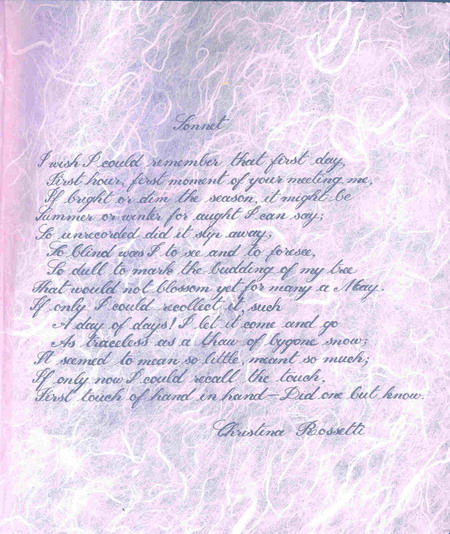 Sonnet
I wish I could remember that first day,
First hour, first moment of your meeting me,
If bright or dim the season, it might be
Summer or winter for aught I can say;
So unrecorded did it slip away,
So blind was I to see and to foresee,
So dull to mark the budding of my tree
That would not blossom yet for many a May.
If only I could recollect it, such
A day of days! I let it come and go
As traceless as a thaw of bygone snow;
It seemed to mean so little, meant so much;
If only now I could recall the touch,
First touch of hand in hand – Did one but know.
Christina Rossetti